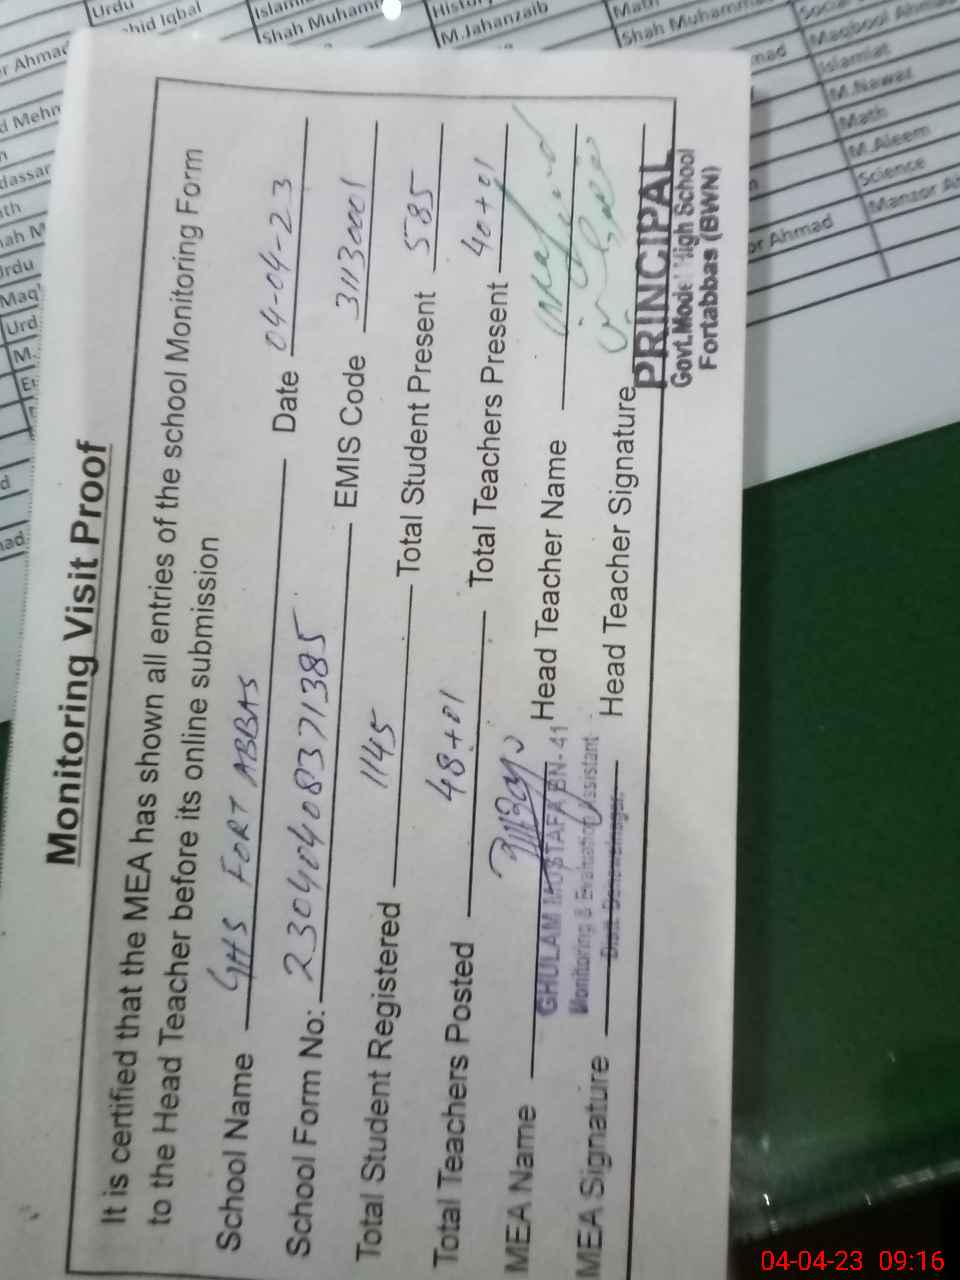 Monitoring Visit Proof
It is certified that the MEA has shown all entries of the school Monitoring Form
to the Head Teacher before its online submission
School Name GHS FORT ABBAS Date 04-04-23
School Form No: 23040408371385 EMIS Code 31130001
Total Student Registered 1145 Total Student Present 585
Total Teachers Posted 48+01 Total Teachers Present 40+01
MEA Name Head Teacher Name
GHULAM MUSTAFA BN-41
Monitoring & Evaluation Assistant
MEA Signature Head Teacher Signature
PRINCIPAL
Govt.Model High School
Fortabbas (BWN)
Urdu
Shah Muhamm
M.Jahanzaib
Math
Shah Muhammad
Maqbool Ahmad
Islamiat
M.Nawaz
Math
M.Aleem
Science
04-04-23 09:16